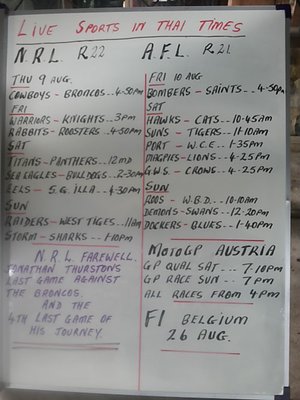 LIVE SPORTS IN THAI TIMES
N.R.L. R22
THU 9 AUG.
COWBOYS - BRONCOS..4-50pm
FRI
WARRIORS - KNIGHTS..3pm
RABBITS - ROOSTERS..4-50pm
SAT
TITANS - PANTHERS..12MD
SEA EAGLES - BULLDOGS..2-30pm
EELS - S.G. ILLA..4-30pm
SUN
RAIDERS - WEST TIGES..11am
STORM - SHARKS...1-10pm
N.R.L. FAREWELL.
JONATHAN THURSTONS
LAST GAME AGAINST
THE BRONCOS.
AND THE
4TH LAST GAME OF
HIS JOURNEY.
A.F.L. R21
FRI 10 AUG
BOMBERS - SAINTS..4-50pm
SAT
HAWKS - CATS - 10-45am
SUNS - TIGERS - 11-10am
PORT - W.C.E - 1-35pm
MAGPIES - LIONS - 4-25pm
G.W.S. - CROWS - 4-25pm
SUN
ROOS - W.B.D. - 10-10am
DEMONS - SWANS - 12-20pm
DOCKERS - BLUES - 1-40pm
MOTOGP AUSTRIA
GP QUAL SAT... 7-10pm
GP RACE SUN - 7pm
ALL RACES FROM 4pm
F1 BELGIUM
26 AUG.